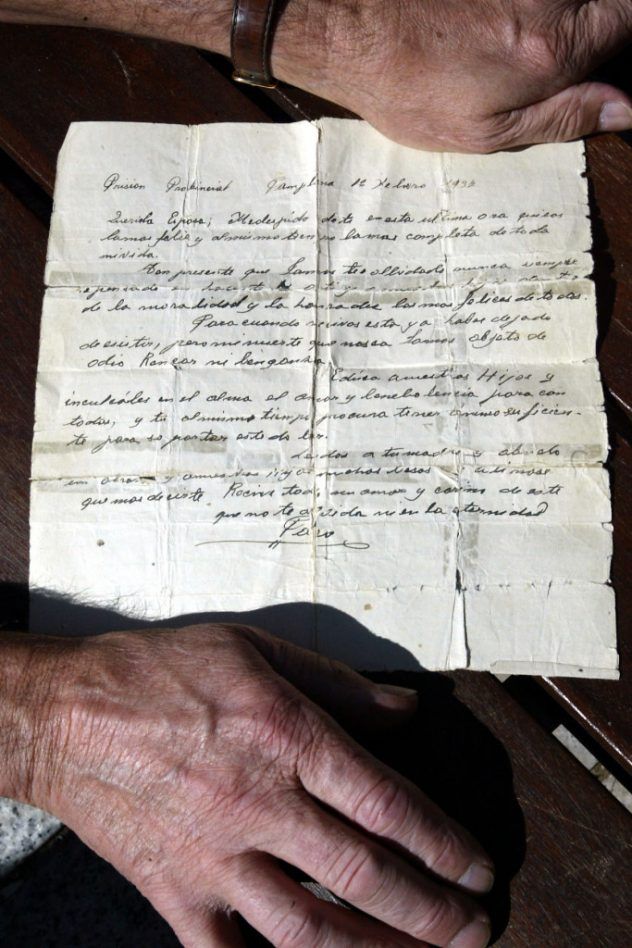 Prision Probincial Pamplona 16 Febrero 193
Querida Esposa; Me despido de te en esta ultima ora quisas
la mas felis y al mismo tiempo la mas completa de toda
mi vida.
Ten presente que Jamas te ollidado nunca siempre
e pensado en hacerte a ti y a nuestros
de la moralidad y la honrades los mas felices de todos.
Para cuando recivas esta ya habre dejado
de esistir, pero mi muerte que no sea Jamas objeto de
odio Rencor ni benganza
Educa a nuestros Hijos y
inculcáles en el alma el amor y benebolencia para con
todos, y tu al mismo tiempo procura tener animo suficien-
te para soportar este dolor.
a tu madre y abuelo
un abrazo y a nuestros hijos muchos besos ultimos
que mas de este Recive todo mi amor y cariño de este
que no te olvida ni en la eternidad